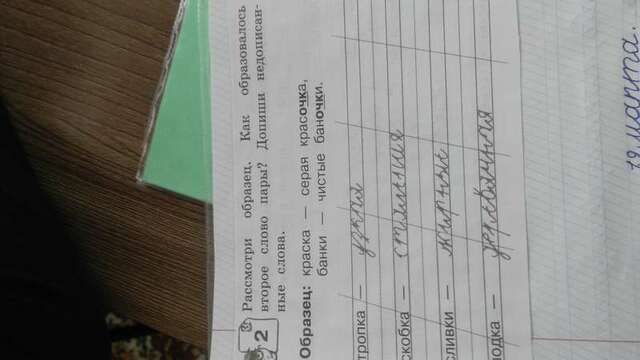 2 Рассмотри образец. Как образовалось
второе слово пары? Допиши недописан-
ные слова.
Образец: краска — серая красочка,
банки — чистые баночки.
тропка — узкая
скобка — стальная
сливки — жирные
лодка —
12 марта.